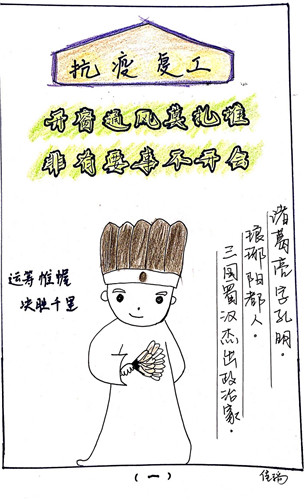 抗疫复工
开窗通风莫扎堆
非有要事不开会
诸葛亮字孔明。
琅琊阳都人。
三国蜀汉杰出政治家。
运筹帷幄
决胜千里
(一)